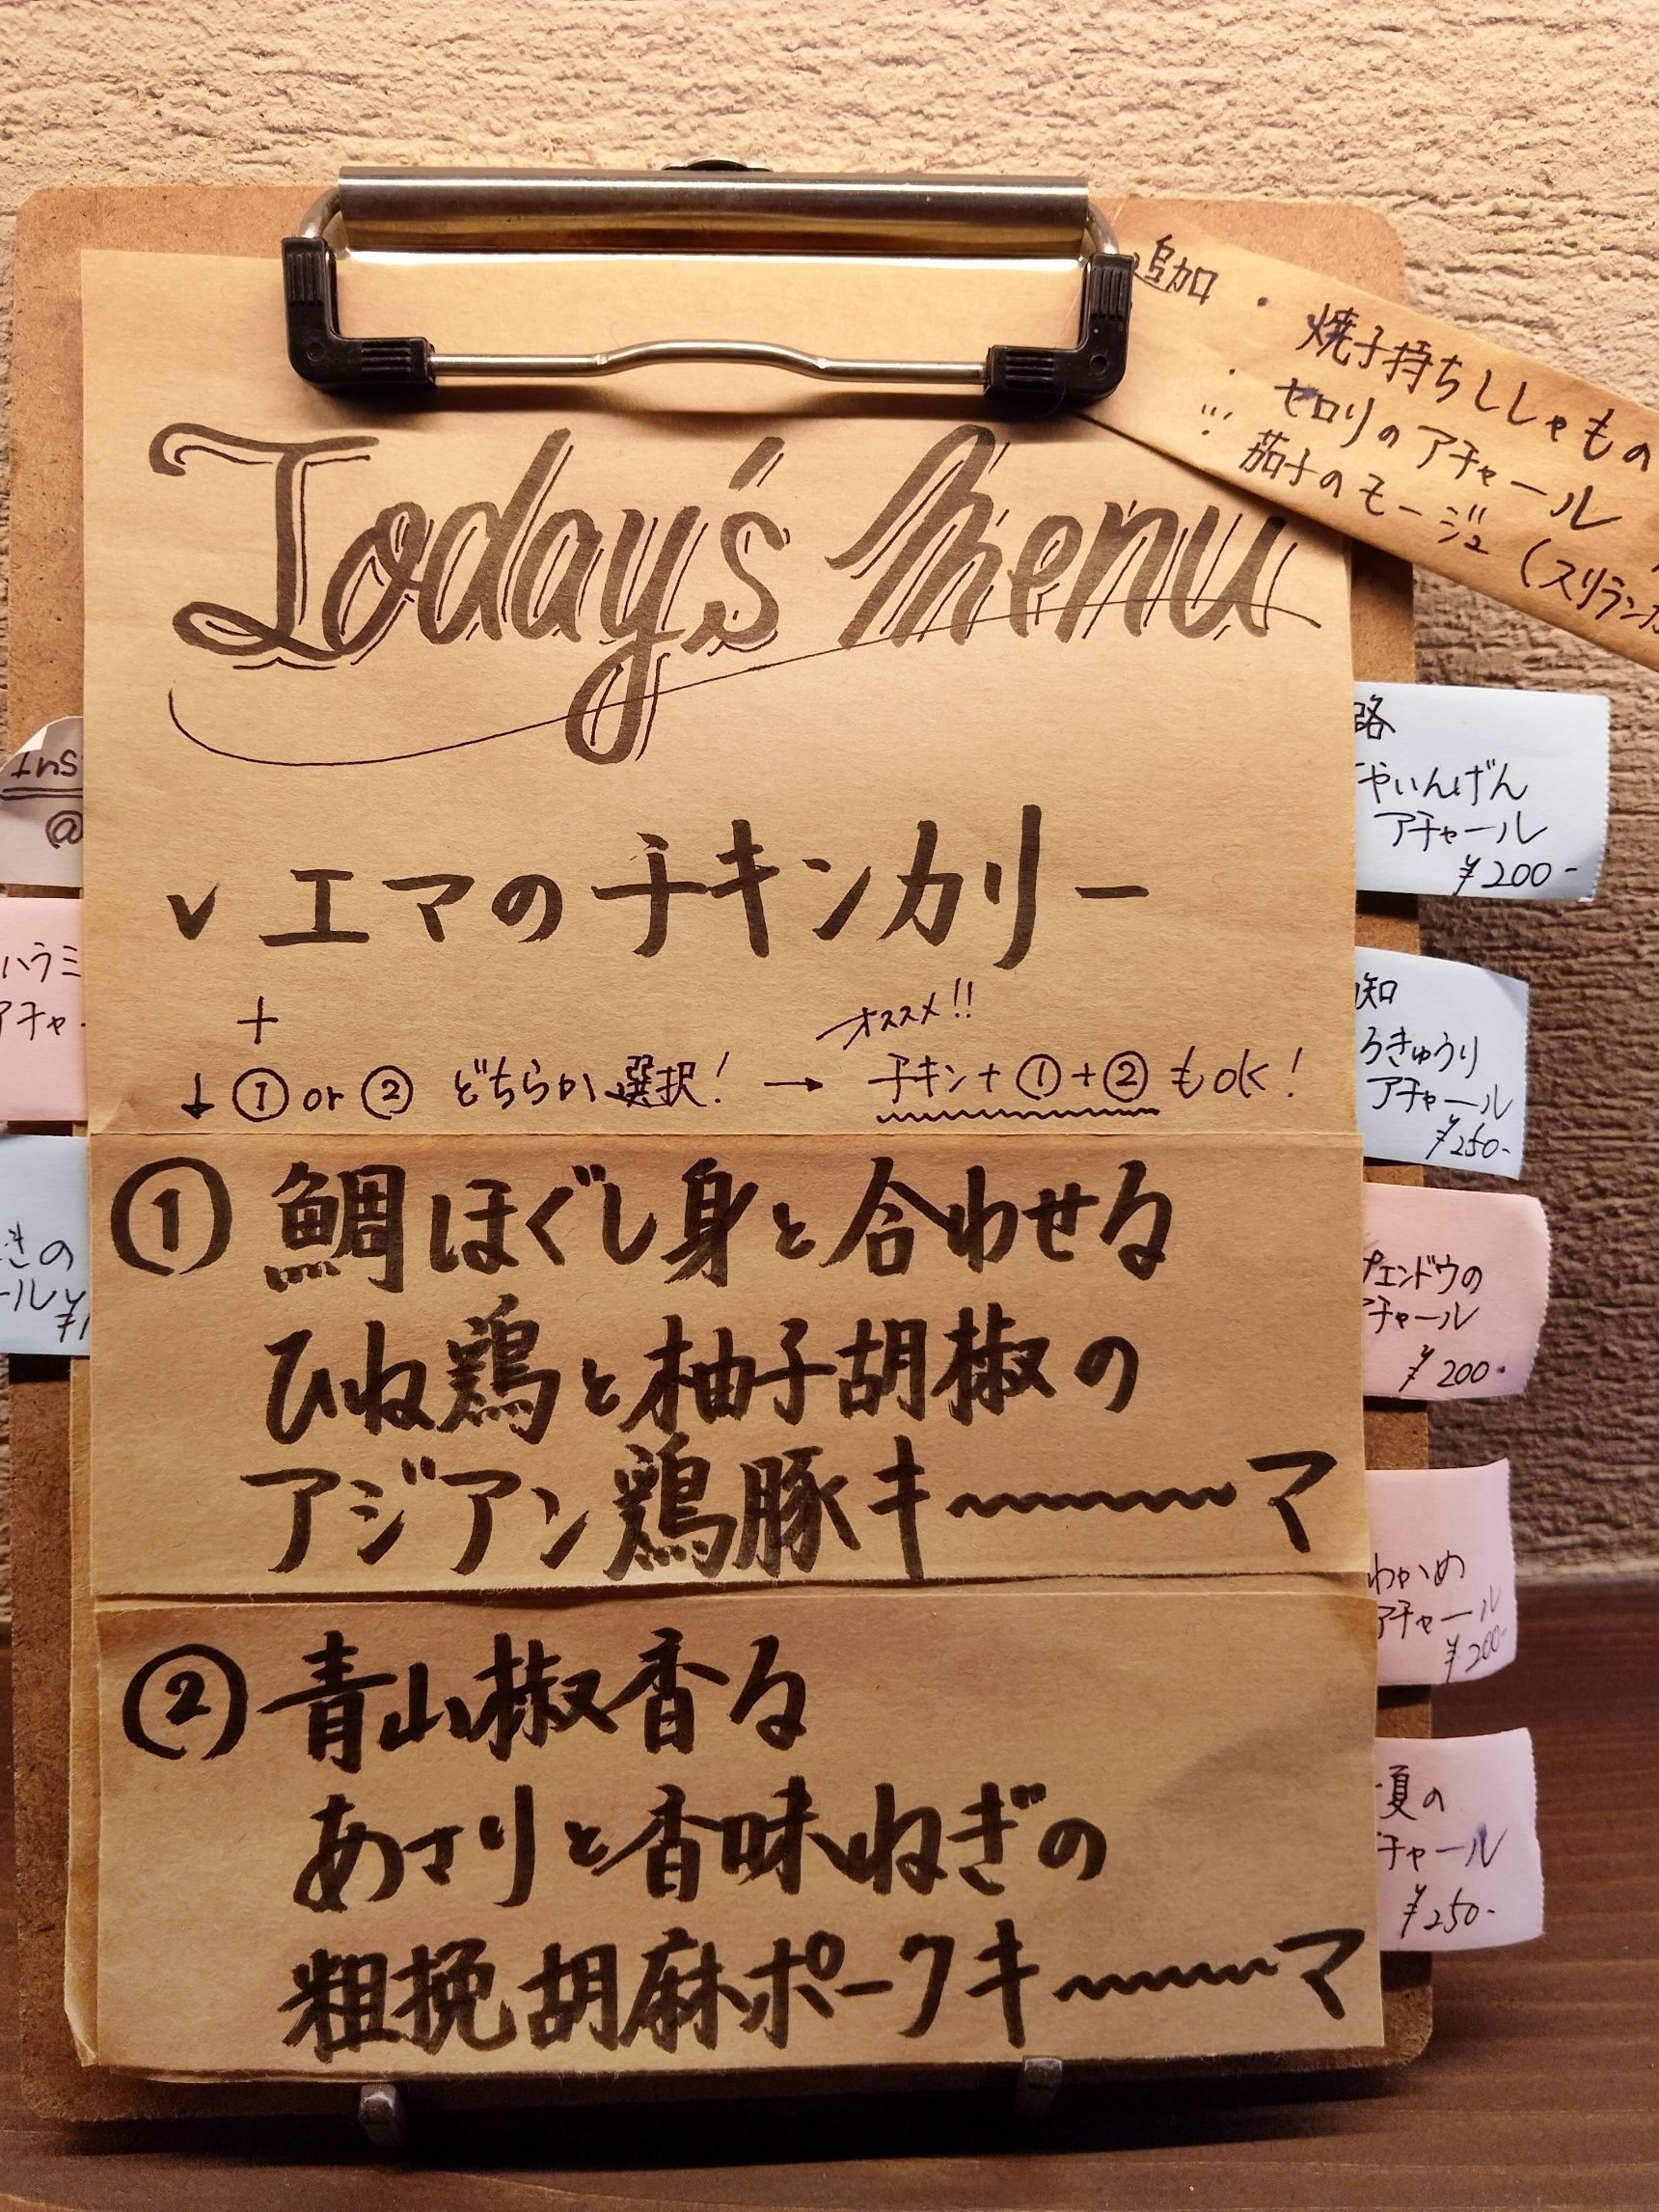 Today's Menu
✓ エマのチキンカリー
+
オススメ!!
↓ ① or ② どちらか選択! → チキン+①+②もOK!
① 鯛ほぐし身と合わせる
ひね鶏と柚子胡椒の
アジアン鶏豚キ〜〜〜マ
② 青山椒香る
あさりと香味ねぎの
粗挽胡麻ポークキ〜〜〜マ
追加
・焼子持ちししゃもの
・セロリのアチャール
茄子のモージュ (スリランカ
路
やいんげん
アチャール
¥200-
知
ろきゅうり
アチャール
¥250-
プエンドウの
チャール
¥200-
わかめ
アチャール
¥200-
夏の
チャール
¥250-
Ins
@
ハラミ
アチャ
きの
ール